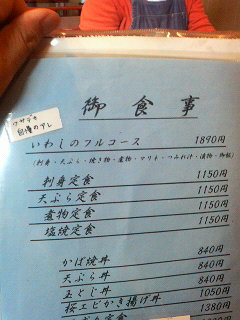 御食事
ウサデキ
自慢のアレ
いわしのフルコース 1890円
(刺身・天ぷら・焼き物・煮物・マリネ・つみれ汁・漬物・御飯)
刺身定食 1150円
天ぷら定食 1150円
煮物定食 1150円
塩焼定食 1150円
かば焼丼 840円
天ぷら丼 840円
玉とじ丼 1050円
桜エビかき揚げ丼 1380円